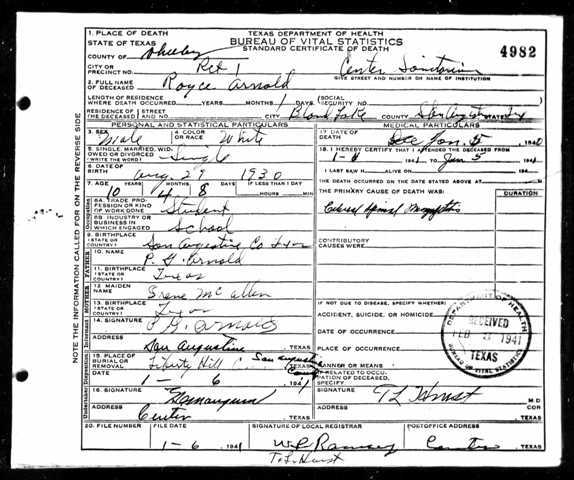 1. PLACE OF DEATH
STATE OF TEXAS
TEXAS DEPARTMENT OF HEALTH
BUREAU OF VITAL STATISTICS
STANDARD CERTIFICATE OF DEATH
4982
COUNTY OF Shelby
CITY OR PRECINCT NO. Pct 1 Center Sanitarium
GIVE STREET AND NUMBER OR NAME OF INSTITUTION
2. FULL NAME OF DECEASED Royce Arnold
LENGTH OF RESIDENCE WHERE DEATH OCCURRED YEARS MONTHS 1 DAYS (SOCIAL SECURITY NO.
RESIDENCE OF THE DECEASED STREET AND NO. CITY COUNTY STATE
PERSONAL AND STATISTICAL PARTICULARS
MEDICAL PARTICULARS
3. SEX Male 4. COLOR OR RACE White
5. SINGLE, MARRIED, WIDOWED OR DIVORCED (WRITE THE WORD) Single
6. DATE OF BIRTH Aug. 29 1930
7. AGE YEARS MONTHS DAYS IF LESS THAN 1 DAY
10 4 8 HOURS MIN.
8A. TRADE, PROFESSION OR KIND OF WORK DONE Student
8B. INDUSTRY OR BUSINESS IN WHICH ENGAGED School
9. BIRTHPLACE (STATE OR COUNTRY) San Augustine Co Texas
10. NAME P. G. Arnold
11. BIRTHPLACE (STATE OR COUNTRY) Texas
12. MAIDEN NAME Irene McCallen
13. BIRTHPLACE (STATE OR COUNTRY) Texas
14. SIGNATURE P G Arnold
ADDRESS San Augustine TEXAS
15. PLACE OF BURIAL OR REMOVAL Liberty Hill C. San Augustine County
1 - 6 1941
16. SIGNATURE
ADDRESS Center TEXAS
17. DATE OF DEATH Jan. 5 194
18. I HEREBY CERTIFY THAT I ATTENDED THE DECEASED FROM
1-4 1941 TO Jan 5 1941
I LAST SAW H ALIVE ON 194
THE DEATH OCCURRED ON THE DATE STATED ABOVE AT M.
THE PRIMARY CAUSE OF DEATH WAS: DURATION
Cerebral Spinal Meningitis
CONTRIBUTORY CAUSES WERE:
IF NOT DUE TO DISEASE, SPECIFY WHETHER:
ACCIDENT, SUICIDE, OR HOMICIDE
DATE OF OCCURRENCE
PLACE OF OCCURRENCE
MANNER OR MEANS
IF RELATED TO OCCUPATION OF DECEASED, SPECIFY
SIGNATURE T L Hurst M D
ADDRESS TEXAS
DEPARTMENT OF HEALTH
RECEIVED
1941
TEXAS
BUREAU OF VITAL STATISTICS
20. FILE NUMBER FILE DATE SIGNATURE OF LOCAL REGISTRAR POSTOFFICE ADDRESS
1-6 1941 W L Ramsey Center TEXAS
T. L. Hurst
NOTE THE INFORMATION CALLED FOR ON THE REVERSE SIDE